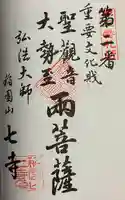 第二番
重要文化戝
聖觀音
大勢至
両菩薩
弘法大師
稲園山 七寺